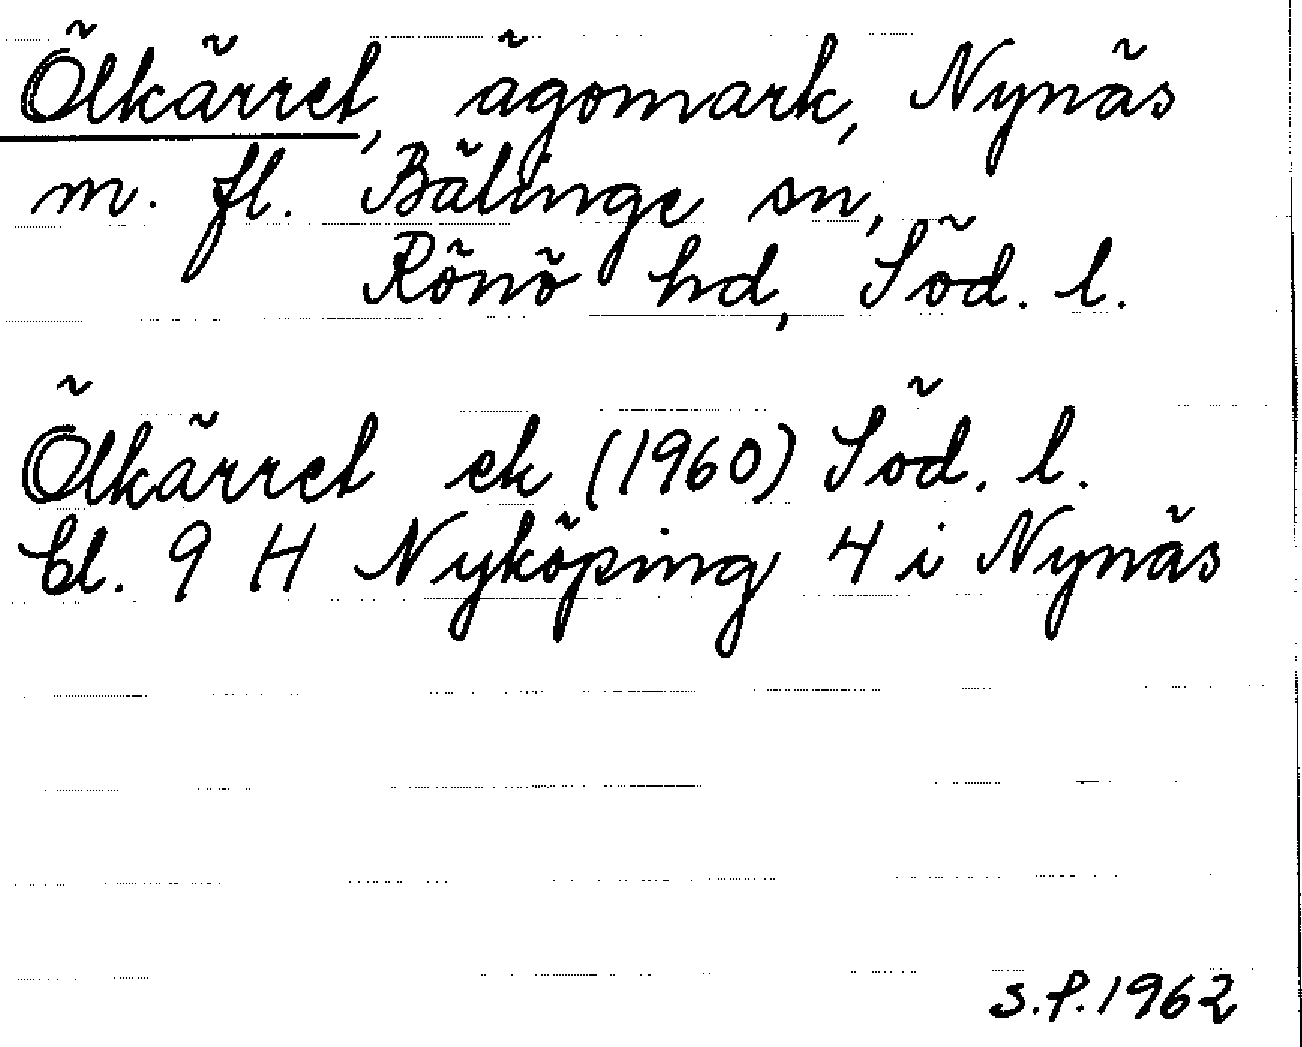 Ölkärret, ägomark, Nynäs
m. fl. Bälinge sn,
Rönö hd, Söd. l.
Ölkärret ek (1960) Söd. l.
bl. 9 H Nyköping 4 i Nynäs
S.P. 1962